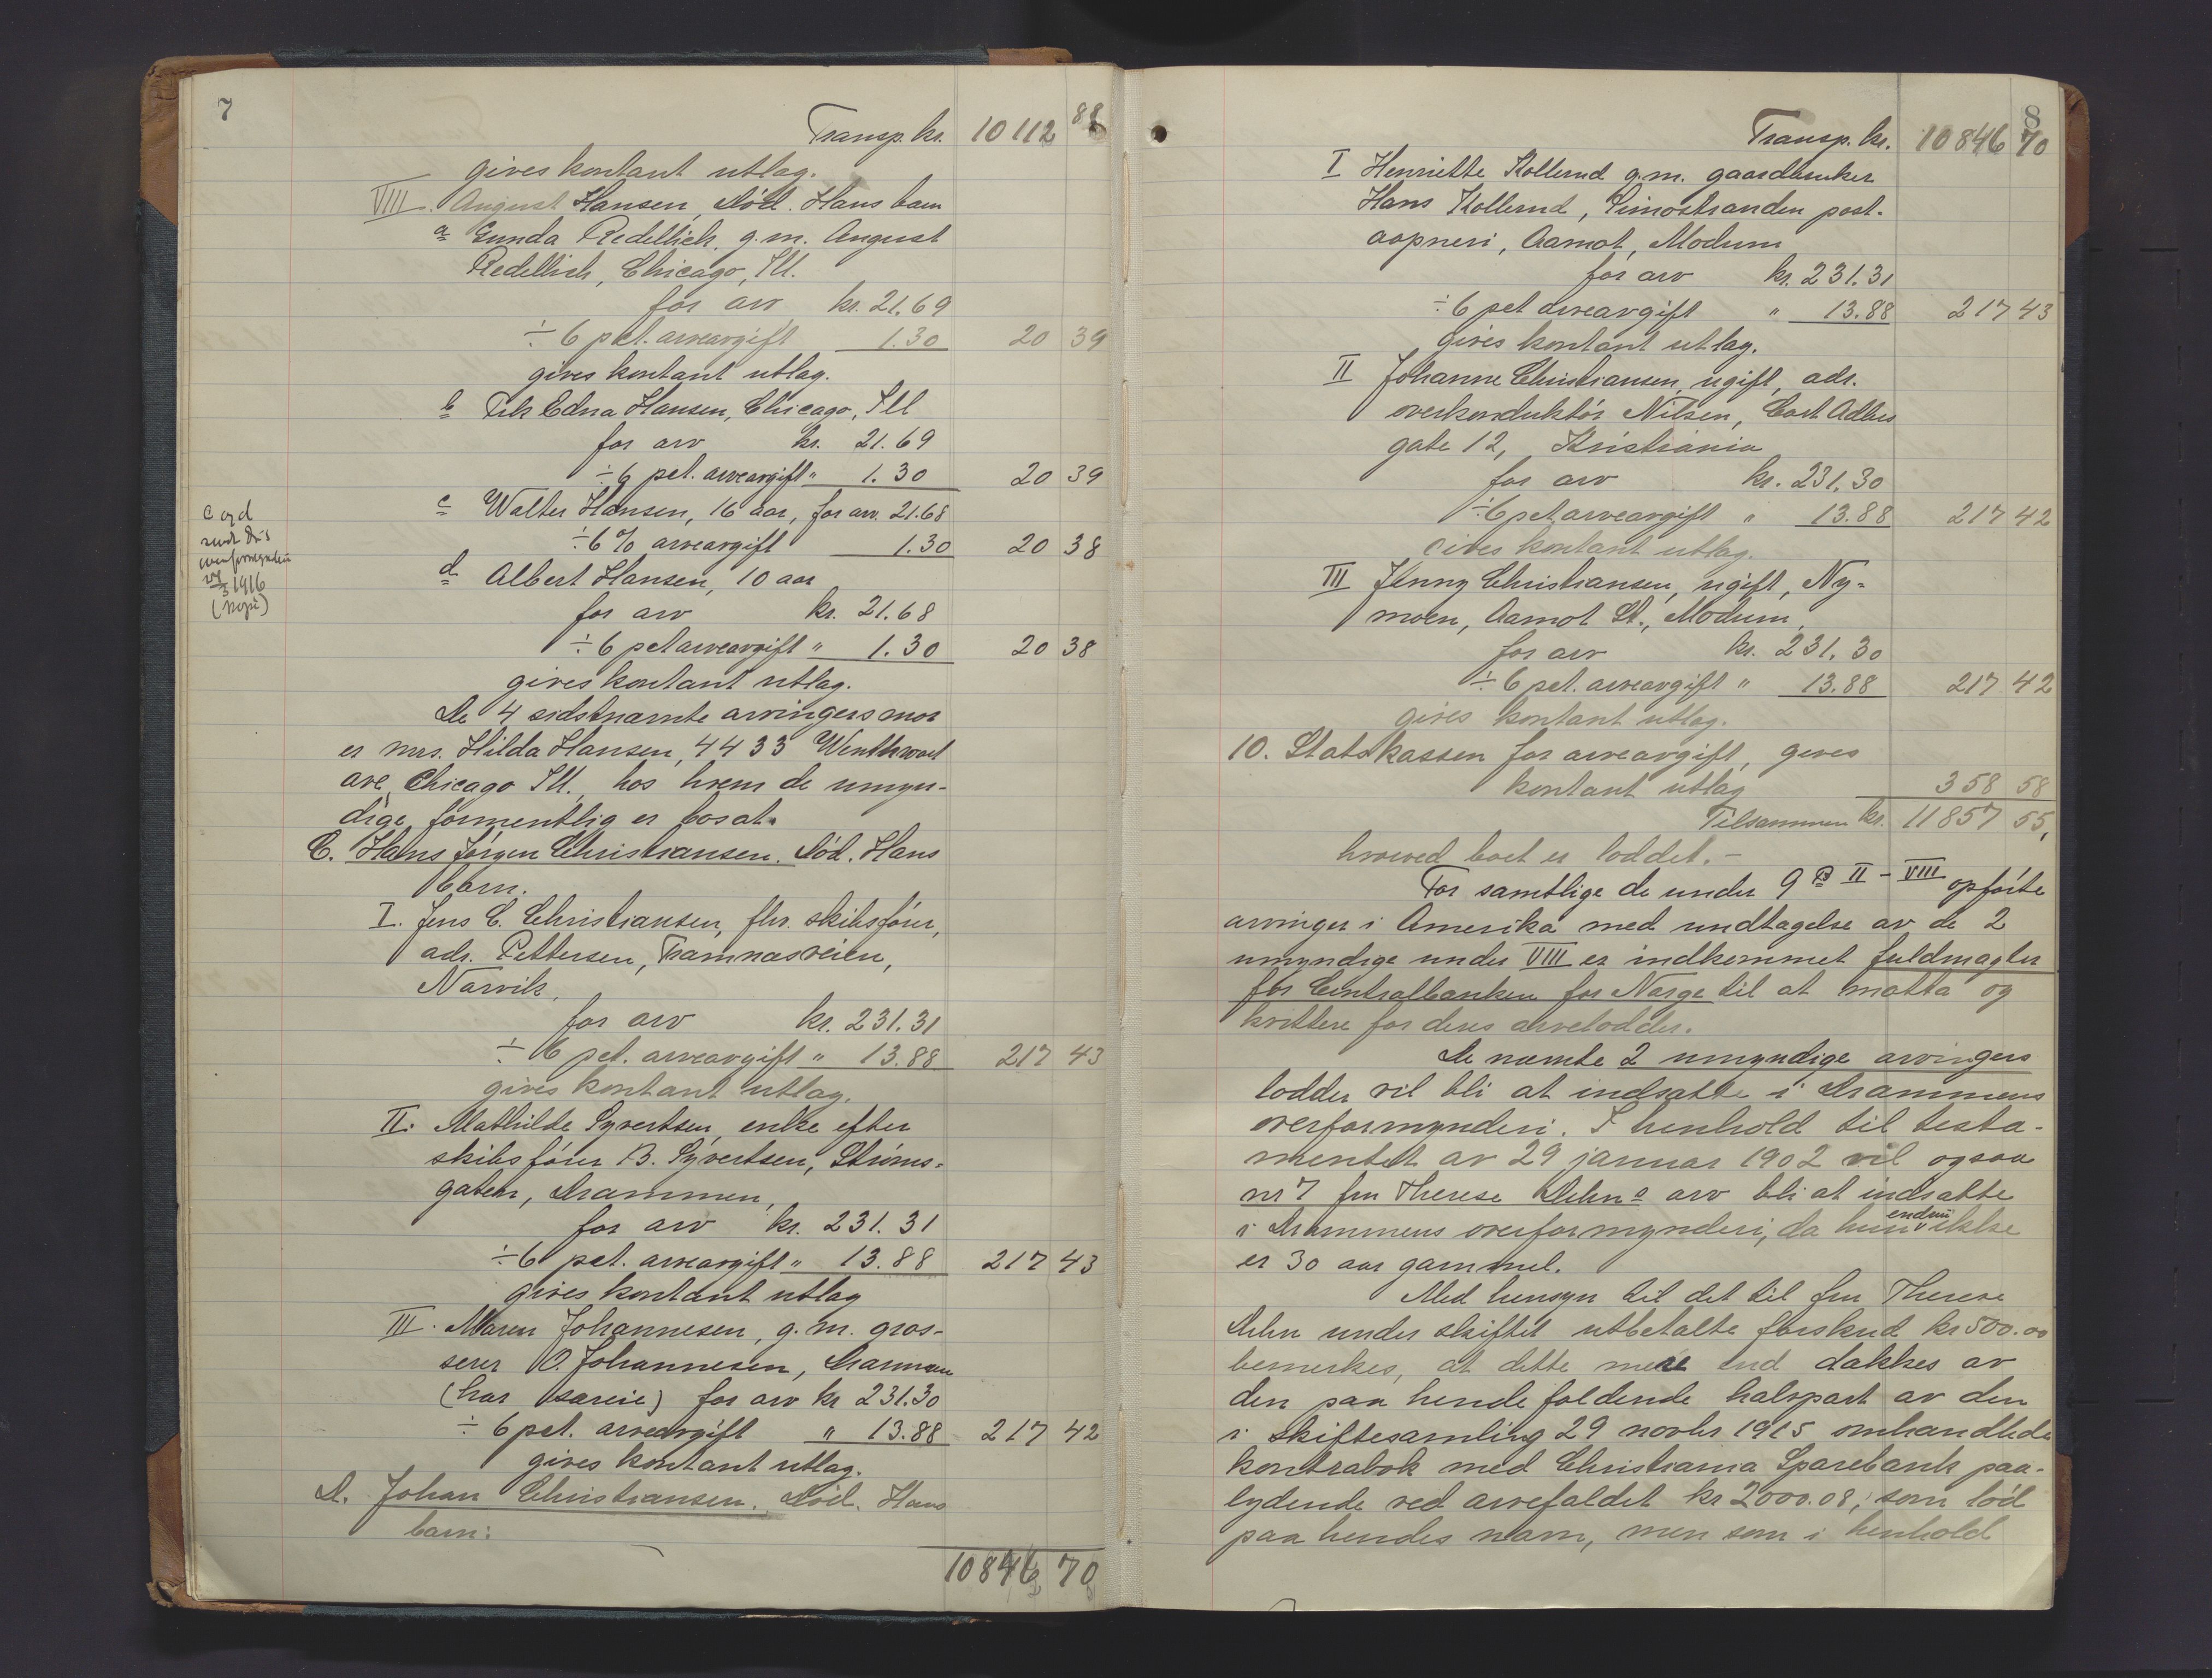 7
Transp. kr. 10 112 88
gives kontant utlæg.
VIII. August Hansen, død. Hans barn
a Gunda Redellich, g.m. August
Redellich, Chicago, Ill.
for arv kr. 21.69
÷ 6 pct. arveavgift 1.30 20 39
gives kontant utlæg.
b Frk Edna Hansen, Chicago, Ill
for arv kr. 21.69
÷ 6 pct. arveavgift " 1.30 20 39
c Walter Hansen, 16 aar, for arv. 21.68
÷ 6 % arveavgift 1.30 20 38
c og d
sendt Drs
overformynderi
1916
d Albert Hansen, 10 aar
for arv kr. 21.68
÷ 6 pct arveavgift " 1.30 20 38
gives kontant utlæg.
De 4 sidstnævnte arvingers mor
er mrs. Hilda Hansen, 4433 Winthwort
ave, Chicago Ill., hos hvem de umyn-
dige formentlig er bosat.
C. Hans Jørgen Christiansen. Død. Hans
barn.
I. Jens C. Christiansen, fhv. skibsfører,
adr. Pettersen, Framnæsveien,
Narvik,
for arv kr. 231.31
÷ 6 pct. arveavgift " 13.88 217 43
gives kontant utlæg.
II. Mathilde Syvertsen, enke efter
skibsfører B. Syvertsen, Strøms-
gaten, Drammen,
for arv kr. 231.31
÷ 6 pct. arveavgift " 13.88 217 43
gives kontant utlæg
III. Maren Johannesen, g.m. gros-
serer O. Johannesen, Drammen
(har særeie) for arv kr 231.30
÷ 6 pct. arveavgift " 13.88 217 42
gives kontant utlæg.
D. Johan Christiansen. Død. Hans
barn:
10846 70
8
Transp. kr. 10 846 70
I Henriette Kollerud g.m. gaardbruker
Hans Kollerud, Simostranden post-
aapneri, Aamot, Modum
for arv kr. 231.31
÷ 6 pct arveavgift " 13.88 217 43
gives kontant utlæg.
II Johanne Christiansen, ugift, adr.
overkonduktør Nilsen, Cort Adlers
gate 12, Kristiania
for arv kr. 231.30
÷ 6 pct arveavgift " 13.88 217 42
gives kontant utlæg.
III Jenny Christiansen, ugift, Ny-
moen, Aamot St., Modum,
for arv kr. 231.30
÷ 6 pct. arveavgift " 13.88 217 42
gives kontant utlæg.
10. Statskassen for arveavgift, gives
kontant utlæg 358 58
Tilsammen kr. 11857 55,
hvorved boet er loddet. –
For samtlige de under 9 B II – VIII opførte
arvinger i Amerika med undtagelse av de 2
umyndige under VIII er indkommet fuldmagter
for Centralbanken for Norge til at motta og
kvittere for deres arvelodder.
De nævnte 2 umyndige arvingers
lodder vil bli at indsætte i Drammens
overformynderi. I henhold til testa-
mentet av 29 januar 1902 vil ogsaa
nr 7 fru Therese Dehns arv bli at indsætte
i Drammens overformynderi, da hun endnu ikke
er 30 aar gammel.
Med hensyn til det til fru Therese
Dehn under skiftet utbetalte forskud kr 500.00
bemerkes, at dette mere end dækkes av
den paa hende faldende halvpart av den
i skiftesamling 29 novbr 1915 omhandlede
kontrabok med Christiania Sparebank paa-
lydende ved arvefaldet kr 2000.08, som lød
paa hendes navn, men som i henhold